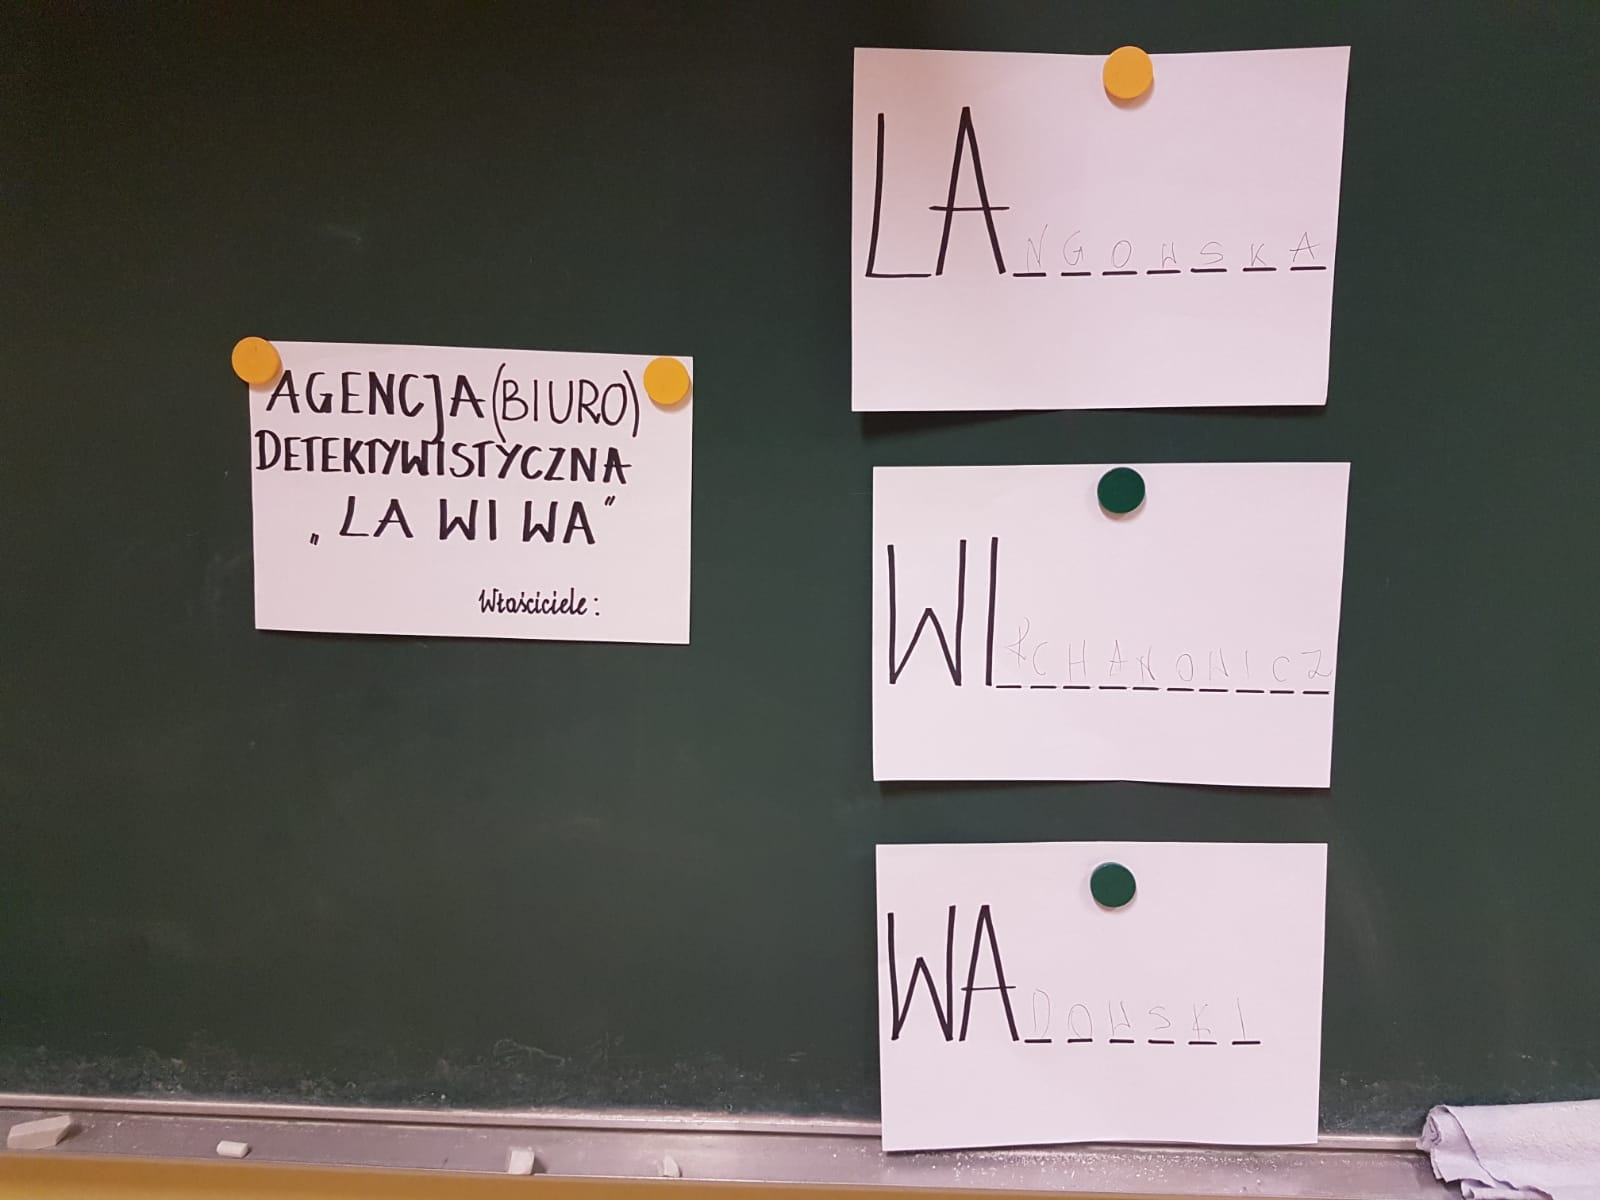 AGENCJA (BIURO)
DETEKTYWISTYCZNA
„LA WI WA”
Właściciele:
LANGOWSKA
WIŁCHANOWICZ
WADOWSKI